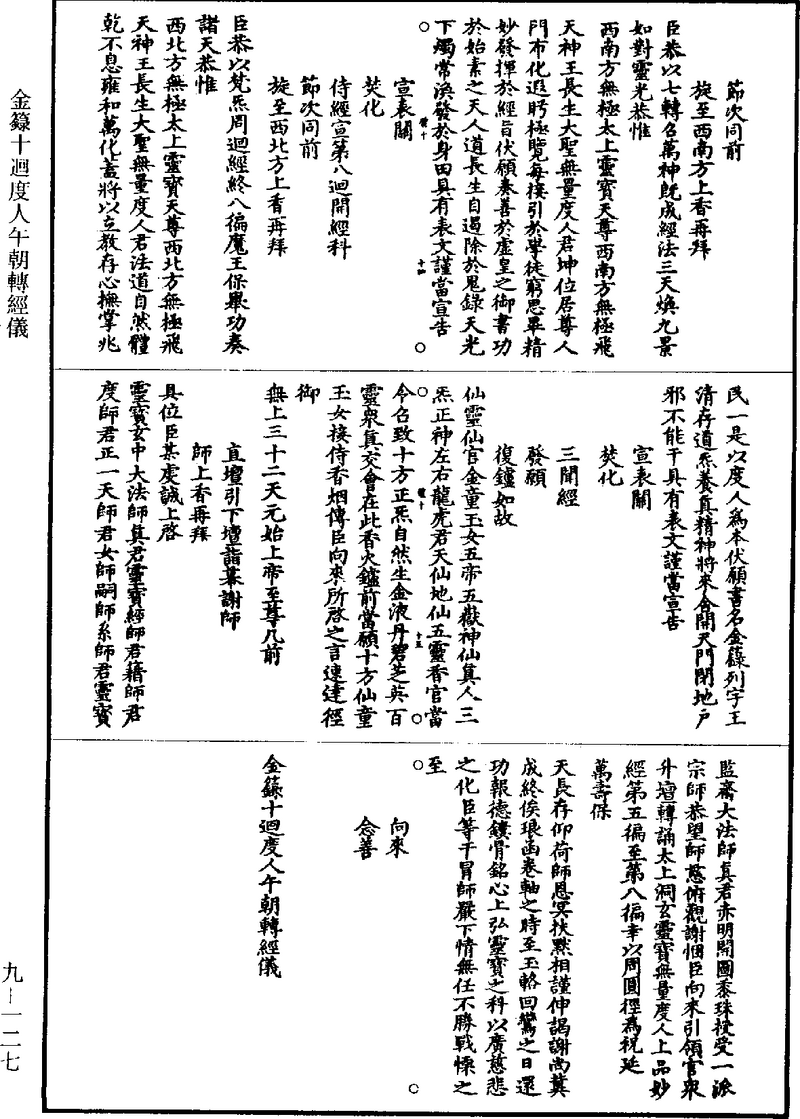 金籙十迴度人午朝轉經儀
九—一二七
節次同前
旋至西南方上香再拜
臣恭以七轉名萬神既成經法三天煥九景
如對靈光恭惟
西南方無極太上靈寶天尊西南方無極飛
天神王長生大聖無量度人君坤位居尊人
門布化遐眄極覽每接引於學徒窮思畢精
妙發揮於經旨伏願奏善於虛皇之御書功
於始素之天人道長生自遏除於鬼錄天光
下燭常渙發於身田具有表文謹當宣告
宣表關
焚化
侍經宣第八迴開經科
節次同前
旋至西北方上香再拜
臣恭以梵炁周迴經終八徧魔王保舉功奏
諸天恭惟
西北方無極太上靈寶天尊西北方無極飛
天神王長生大聖無量度人君法道自然體
乾不息雍和萬化蓋將以立教存心撫掌兆
民一是以度人為本伏願書名金籙列字王
清存道炁養真精神將來合開天門閉地戶
邪不能干具有表文謹當宣告
宣表關
焚化
三聞經
發願
復鑪如故
仙靈仙官金童玉女五帝五嶽神仙真人三
炁正神左右龍虎君天仙地仙五靈香官當
今召致十方正炁自然生金液丹碧芝英百
靈眾真交會在此香火鑪前當願十方仙童
玉女接侍香烟傳臣向來所啓之言速達徑
御
無上三十二天元始上帝至尊几前
直壇引下壇詣幕謝師
師上香再拜
具位臣某虔誠上啓
靈寶玄中大法師真君靈寶經師君籍師君
度師君正一天師君女師嗣師系師君靈寶
監齋大法師真君赤明開圖黍珠授受一派
宗師恭望師慈俯觀謝悃臣向來引領官眾
升壇轉誦太上洞玄靈寶無量度人上品妙
經第五徧至第八徧幸以周圓徑為祝延
萬壽保
天長存仰荷師恩冥扶黙相謹伸謁謝尚冀
成終俟琅函卷軸之時至玉輅回鸞之日還
功報德鏤骨銘心上弘靈寶之科以廣慈悲
之化臣等干冒師嚴下情無任不勝戰慄之
至
向來
念善
金籙十迴度人午朝轉經儀